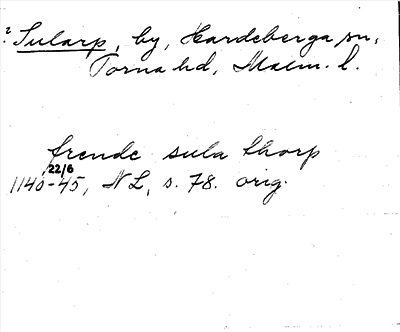 ? Sularp, by, Hardeberga sn,
Torna hd, Malm. l.
frende sula thorp
22/6
1140-45, NL, s. 78. orig.